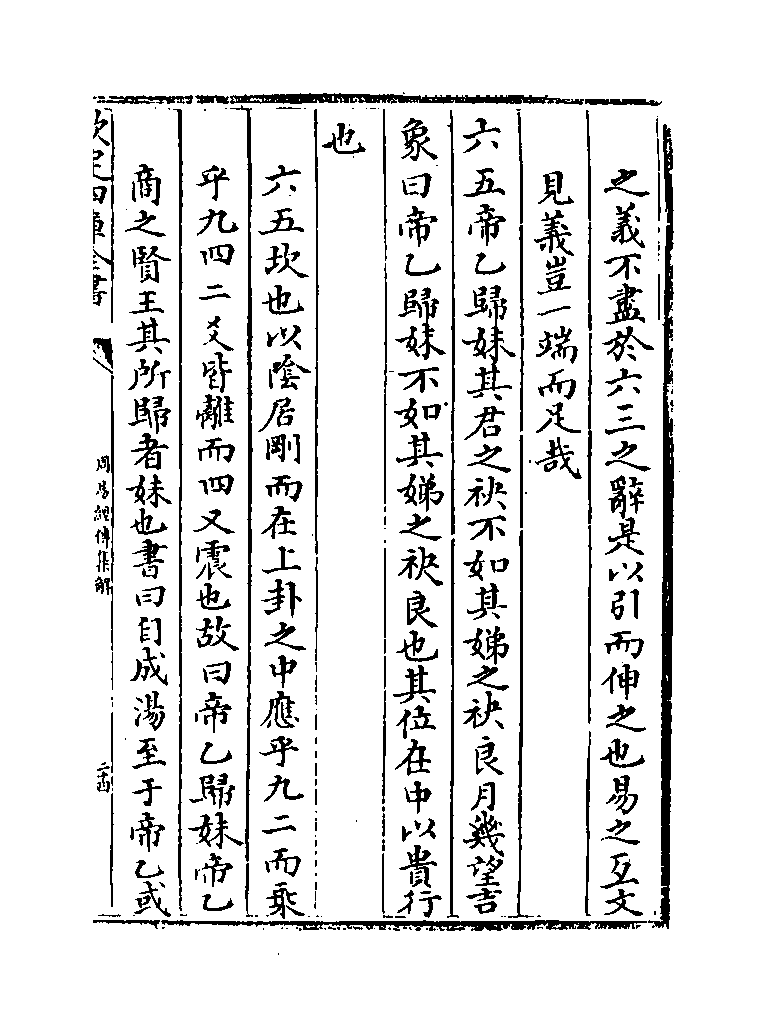 之義不盡於六三之辭是以引而伸之也易之互文
見義豈一端而足哉
六五帝乙歸妹其君之袂不如其娣之袂良月幾望吉
象曰帝乙歸妹不如其娣之袂良也其位在中以貴行
也
六五坎也以陰居剛而在上卦之中應乎九二而乘
乎九四二爻皆離而四又震也故曰帝乙歸妹帝乙
商之賢王其所歸者妹也書曰自成湯至于帝乙或
欽定四庫全書
周易經傳集解
二十四